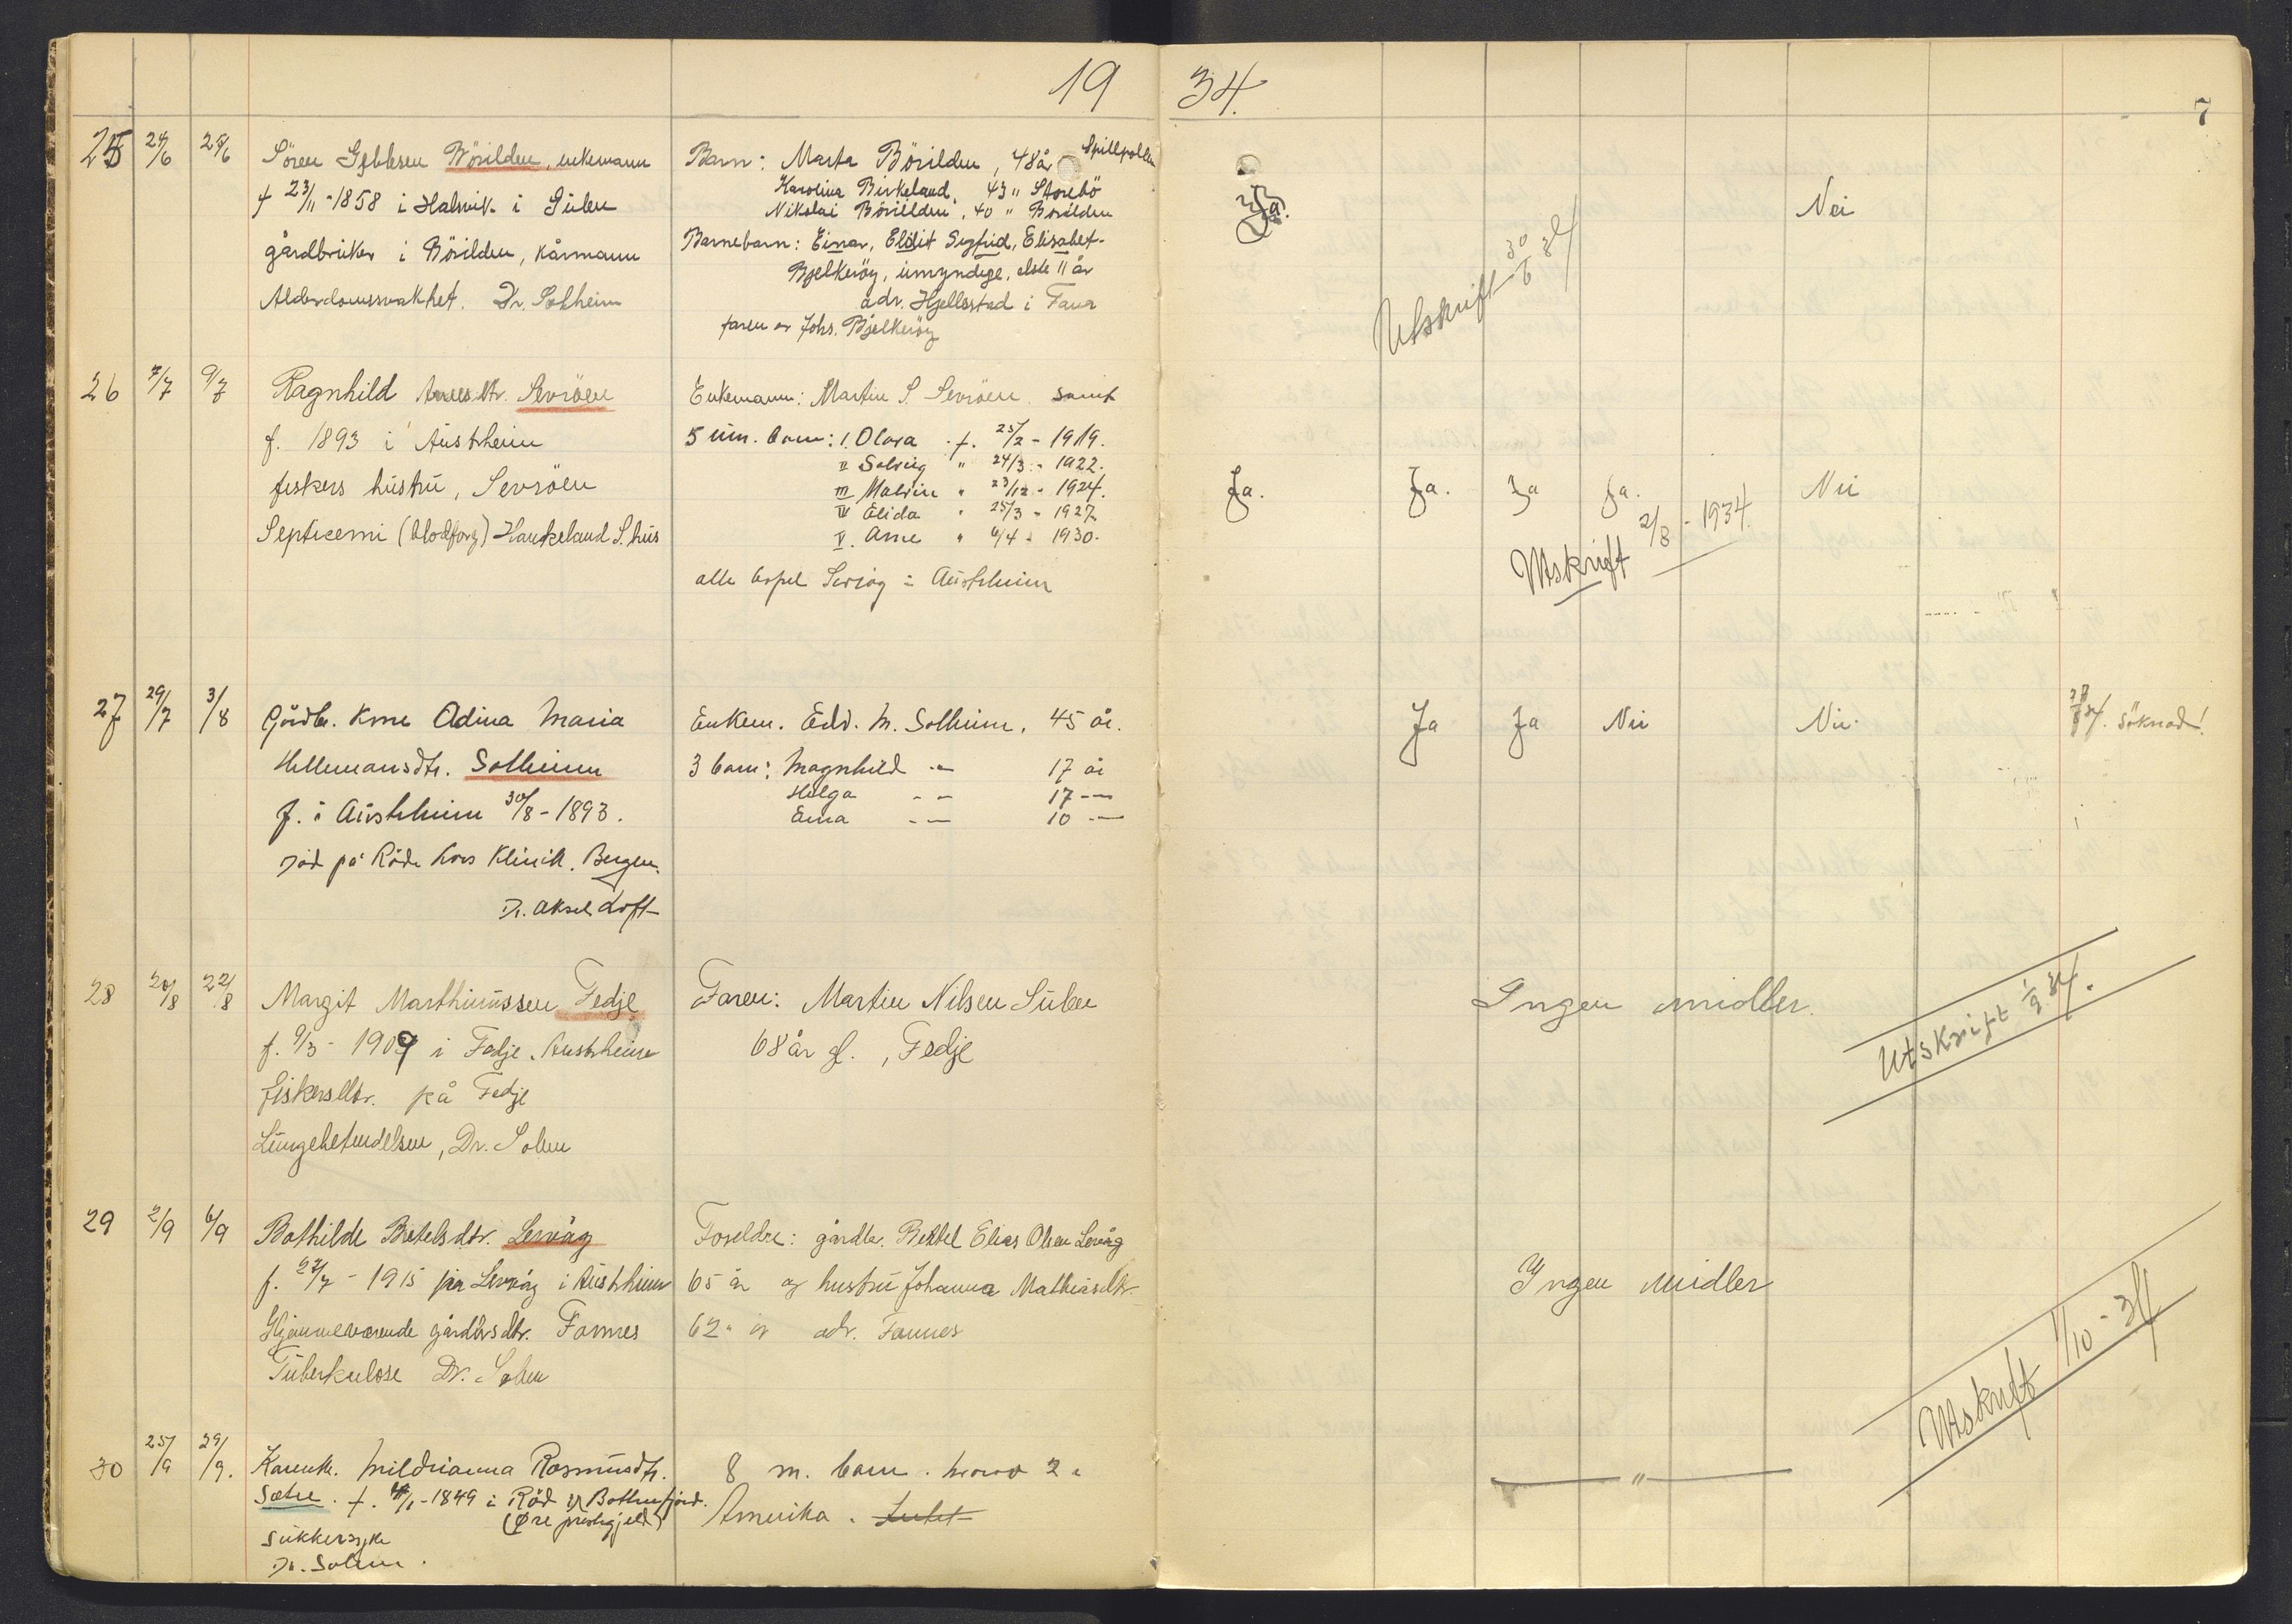 19 34.
7
25 24/6 25/6 Sören Börilden, enkemann
f 23/11-1858 i Halsvik i Sulen
gårdbruker i Börilden, kårmann
Alderdomssvakhet. Dr. Solheim
Barn: Marta Börilden, 48 år Spillpollen
Karolina Birkeland, 43 " Storebö
Nikolai Börilden, 40 " Börilden
Barnebarn: Einar, Sigfrid, Elisabet
Bjelkeröy, umyndige, elste 11 år
adr. Hjellestad i Fana
faren er Johs. Bjelkeröy
Ja. Nei
Utskrift 30/6 34
26 7/7 9/7 Ragnhild dtr. Sevröen
f. 1893 i Austrheim
fiskers hustru, Sevröen
Septicemi (blodforg) Haukeland S.hus
Enkemann: Martin S. Sevröen samt
5 um. barn: I. Olava f. 25/2 - 1919.
II Solveig " 24/3 - 1922.
III Malvin " 23/12 - 1924.
IV Elida " 25/3 - 1927.
V. Arne " 6/4 - 1930.
alle bopel Sevröy i Austrheim
Ja. Ja. Ja Ja. Nei
Utskrift 2/8 - 1934.
27 29/7 3/8 Gårdbr. kone Adina Maria
Hellemansdtr. Solheim
f. i Austrheim 30/8 - 1893.
Död på Röde Kors Klinik. Bergen.
Dr. Aksel Loft
Enkem. Edv. M. Solheim, 45 år.
3 barn: Magnhild — 17 år
Helga — 17 —
Erna — 10 —
Ja Ja Nei Nei söknad!
28 20/8 22/8 Margit Marthinussen Fedje
f. 9/3 - 1909 i Fedje, Austrheim
fiskersdtr. på Fedje
Lungebetendelsen, Dr. Solem
Faren: Martin Nilsen Sulen
68 år gl., Fedje
Ingen midler.
Utskrift 1/9 34.
29 2/9 6/9 Bothilde Bertelsdtr. Lervåg
f. 22/7 - 1915 på Lervåg i Austrheim
Hjemmeværende gårdbrsdtr. Fonnes
Tuberkulose Dr. Solem
Foreldre: gårdbr. Bertel Elias Olsen Lervåg
65 år og hustru Johanna Mathiasdtr.
62 " og adr. Fonnes
Ingen midler
Utskrift 1/10 - 34
30 25/9 29/9. Mildrianna Rasmusdtr.
Sætre. f. 1849 i Röd i Botnfjord.
(Øre prestegjeld)
Sukkersyke
Dr. Solem.
8 m. barn. hvorav 2 i
Amerika.
— " —